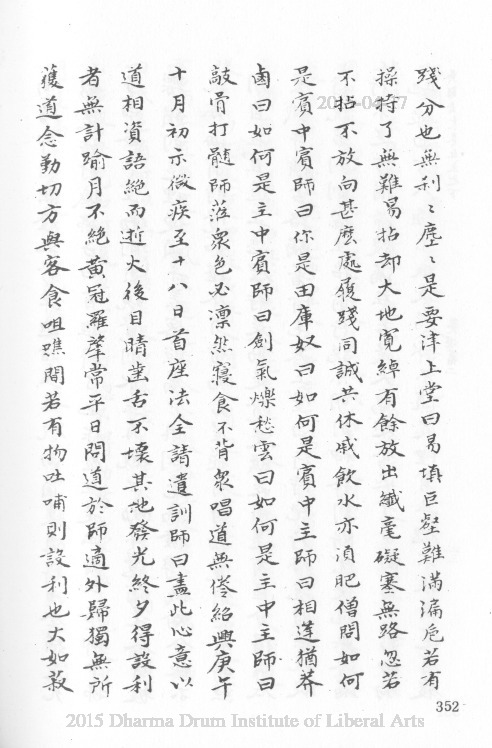 踐分也無刹〻塵〻是要津上堂曰易填巨壑難滿漏巵若有
操持了無難易拈却大地寬綽有餘放出纖毫礙塞無路忽若
不拈不放向甚麼處履踐同誠共休戚飲水亦須肥僧問如何
是賓中賓師曰你是田庫奴曰如何是賓中主師曰相逢猶莽
鹵曰如何是主中賓師曰劍氣爍愁雲曰如何是主中主師曰
敲骨打髓師莅衆色必凛然寢食不背衆唱道無倦紹興庚午
十月初示微疾至十八日首座法全請遺訓師曰盡此心意以
道相資語絕而逝火後目睛齒舌不壞其地發光終夕得設利
者無計踰月不絕黃冠羅肇常平日問道於師適外歸獨無所
獲道念勤切方與客食咀噍間若有物吐哺則設利也大如菽
352
2015 Dharma Drum Institute of Liberal Arts